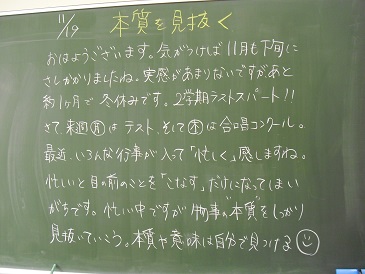 11/19 本質を見抜く
おはようございます。気がつけば11月も下旬に
さしかかりましたね。実感があまりないですがあと
約1ヶ月で冬休みです。2学期ラストスパート!!
さて、来週㊊はテスト、そして㊍は合唱コンクール。
最近、いろんな行事が入って「忙しく」感じますね。
忙しいと目の前のことを「こなす」だけになってしまい
がちです。忙しい中ですが物事の"本質"をしっかり
見抜いていこう。本質や意味は自分で見つける